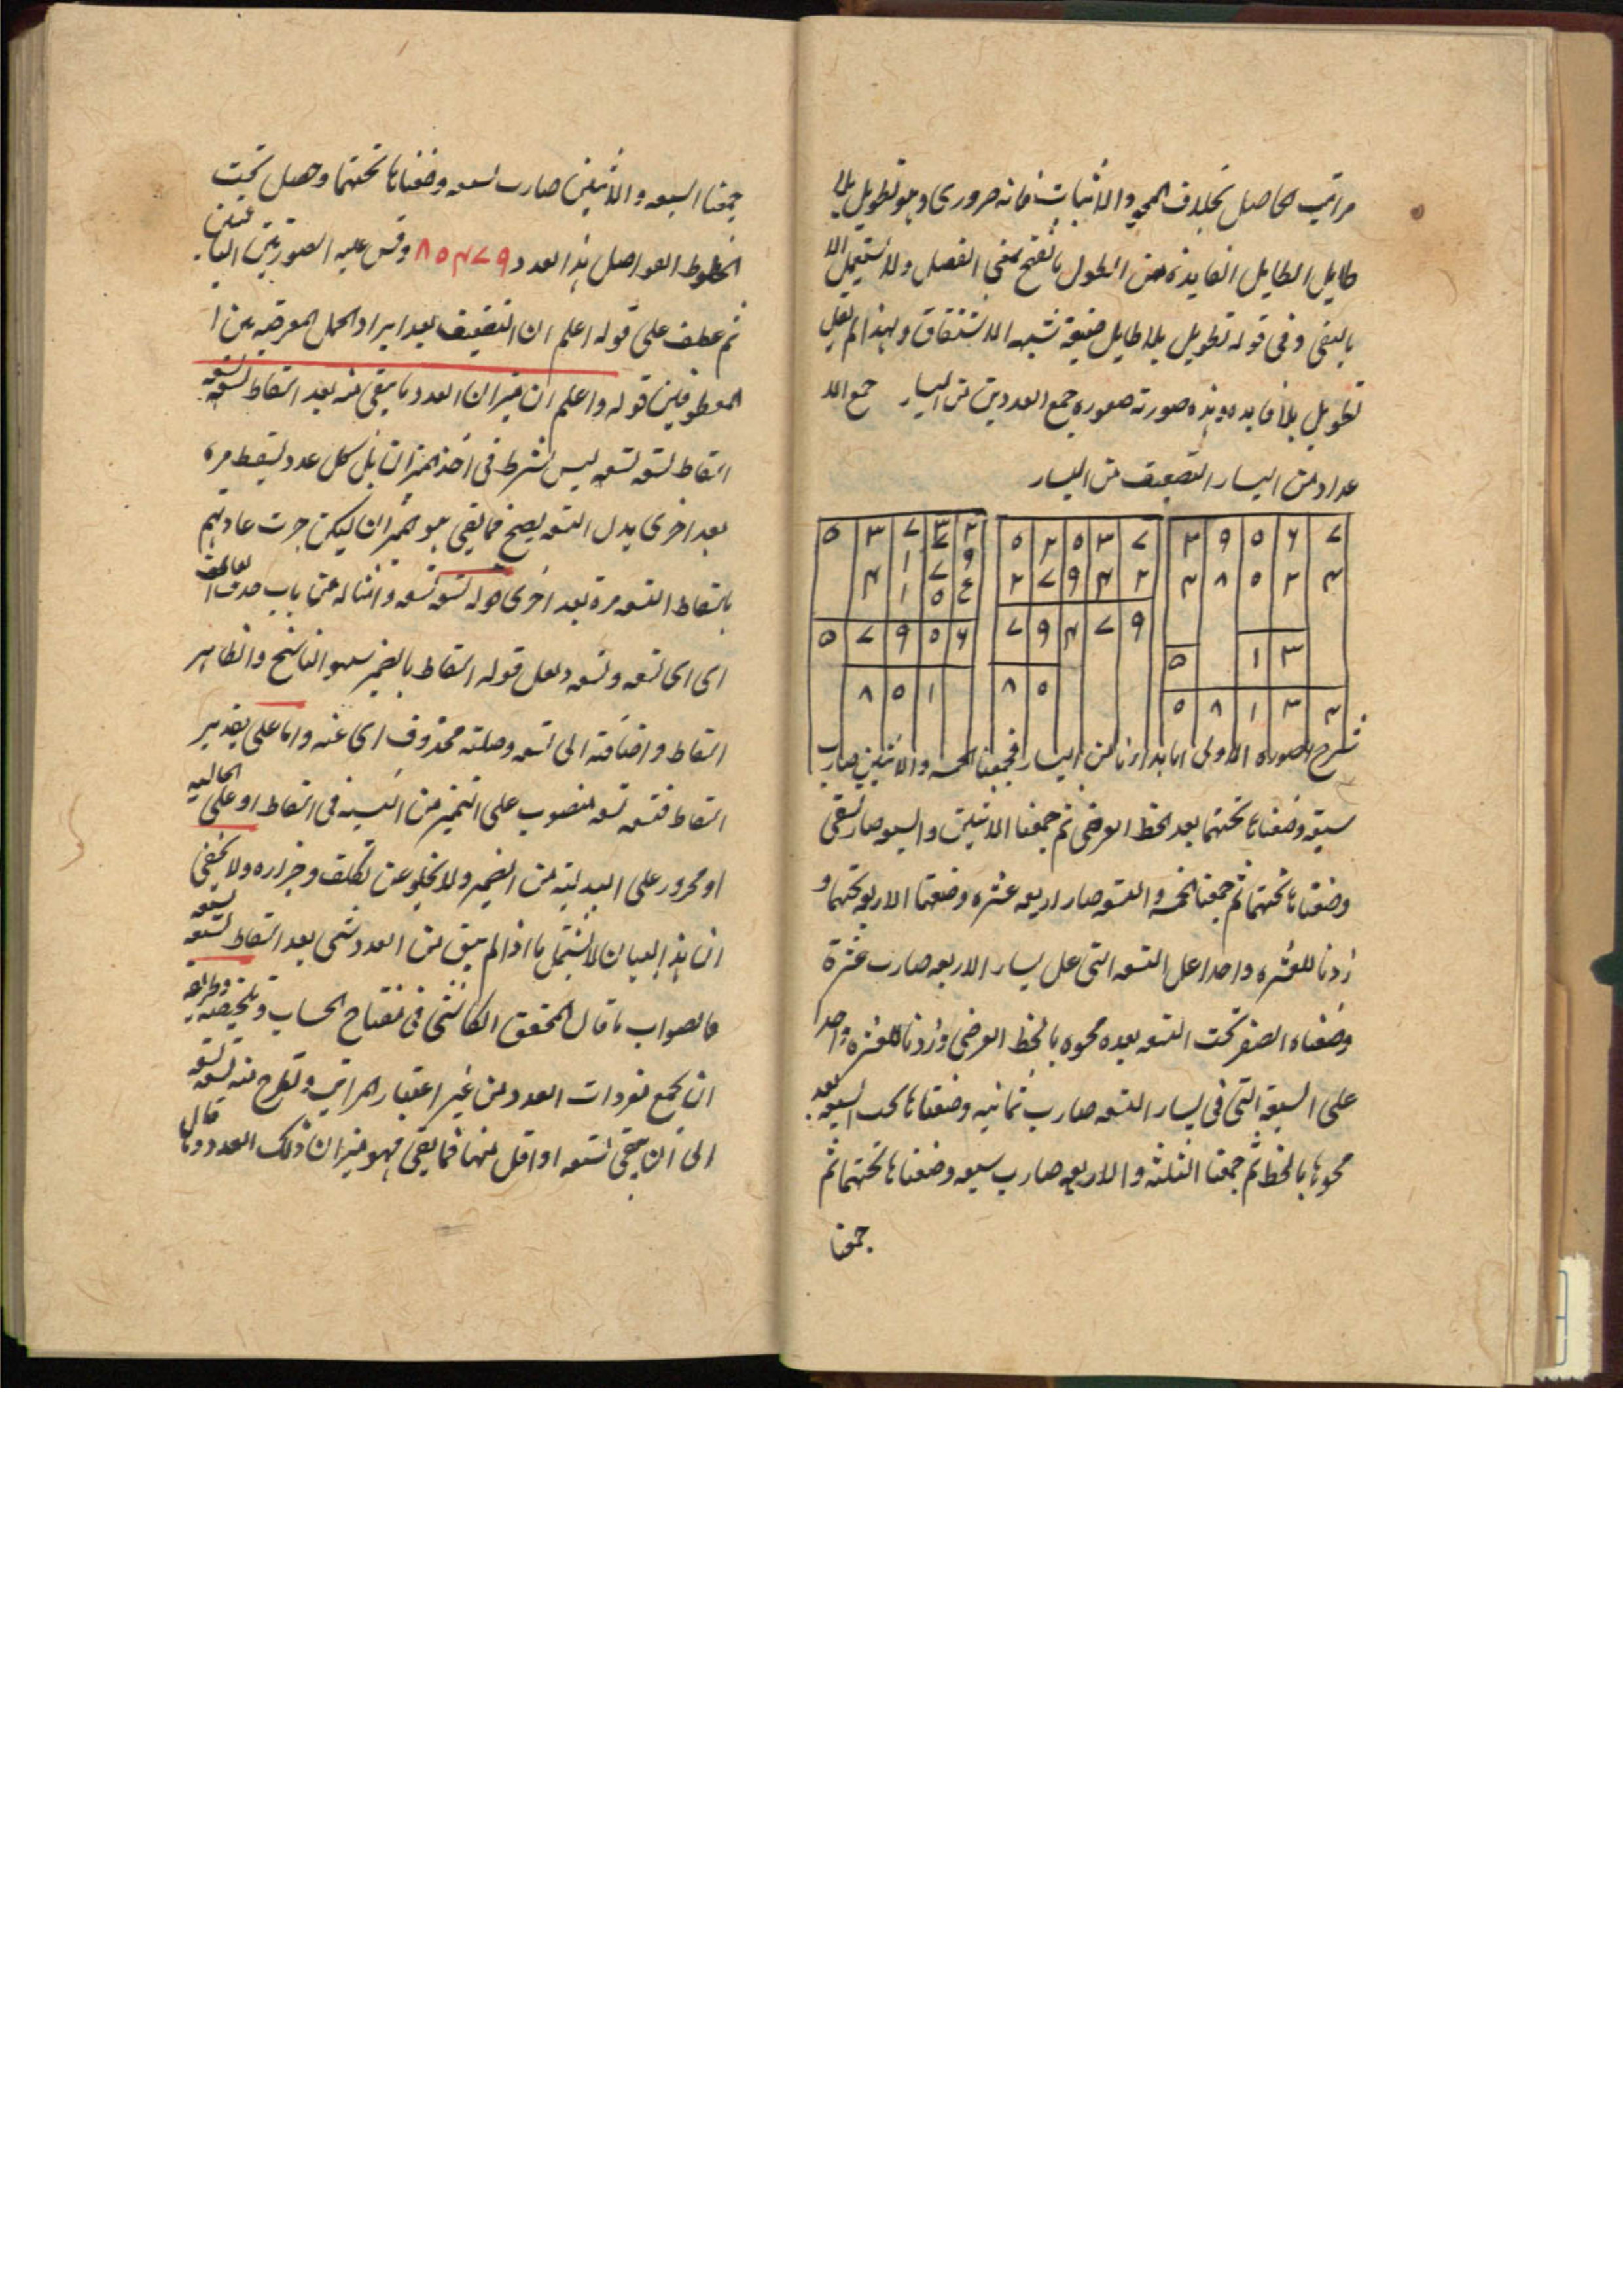 مراتب الحاصل بخلاف المحو والاثبات فانه ضروری وهو تطویل بلا
طایل الطایل الفایدة من الطول بالفتح بمعنی الفضل ولا یستعمل الا
بالنفی وفی قوله تطویل بلا طایل صنیعة شبهه الاشتقاق ولهذا لم یقل
تطویل بلا فایده وهذه صورته صوره جمع العددین من الیسار جمع الا
عداد من الیسار التضعیف من الیسار
۵ ۳ ۷ ۳ ۲ ۵ ۲ ۵ ۳ ۷ ۳ ۹ ۵ ۶ ۷
۲ ۷ ۹ ۴ ۲
۵ ۷ ۹ ۵ ۶ ۷ ۹ ۴ ۷ ۹
۵ ۱ ۳
۸ ۵ ۱ ۸ ۵ ۵ ۸ ۱ ۳ ۴
شرح الصوره الاولی انا بدانا من الیسار فجمعنا الخمسه والاثنین صارت
سبعة وضعناها تحتهما بعد الخط العرضی ثم جمعنا الاثنین والسبعه صار تسعة
وضعناها تحتهما ثم جمعنا الخمسة والتسعه صار اربعه عشره وضعنا الاربعه تحتهما و
زدنا للعشره واحدا علی التسعه التی علی یسار الاربعه صارت عشرة
وضعناه الصفر تحت التسعه بعده محوه بالخط العرضی وزدنا للعشرة واحد
علی السبعة التی فی یسار التسعه صارت ثمانیه وضعناها تحت السبعه بعد
محوها بالخط ثم جمعنا الثلثه والاربعه صارت سبعه وضعناها تحتهما ثم
جمعنا
جمعنا السبعه والاثنین صارت تسعه وضعناها تحتهما وحصل تحت
الخطوط الفواصل هذا العدد ۸۵۴۷۹ وقس علیه الصورتین الباقیتین
ثم عطف علی قوله اعلم ان التضعیف بعد ایراد الجمل المعرضیه بین ا
لمعطوفین قوله واعلم ان میزان العدد ما یبقی منه بعد اسقاطه تسعه تسعه
اسقاط تسعه تسعه لیس بشرط فی اخذ المیزان بل کل عدد یسقط مره
بعد اخری بدل التسعه یصح فما یبقی هو المیزان لیکن جرت عادتهم
باسقاط التسعه مرة بعد اخری قوله تسعه تسعه وامثاله من باب حذف العاطف
ای ای تسعه وتسعه ولعل قوله اسقاط بالضمیر سهو الناسخ والظاهر
اسقاط واضافته الی تسعه وصلته محذوف ای عنه واما علی تقدیر
اسقاط فتسعه تسعه منصوب علی التمیز من النسبة فی اسقاط او علی الحالیه
او مجرور علی البدلیة من الضمیر ولا یخلو عن تکلف وخزاره ولا یخفی
ان هذا البیان لا یشتمل ما اذا لم یبق من العدد شی بعد اسقاط تسعه تسعه
فالصواب ما قال المحقق الکاشی فی مفتاح الحساب وتلخیصه وطریقه
ان یجمع مفردات العدد من غیر اعتبار المراتب وتطرح منه تسعه تسعه
الی ان یبقی تسعه او اقل منها فما یبقی فهو میزان ذلک العدد وما قال